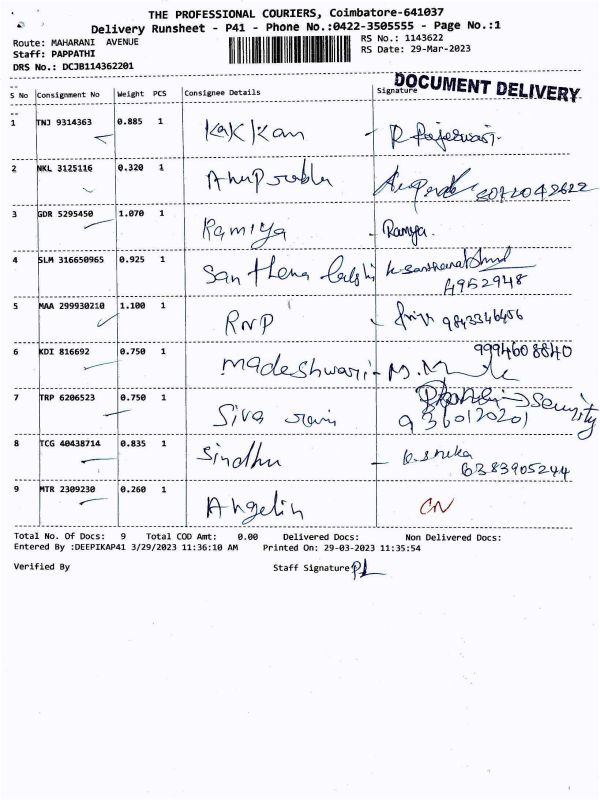 THE PROFESSIONAL COURIERS, Coimbatore-641037
Delivery Runsheet - P41 - Phone No.:0422-3505555 - Page No.:1
Route: MAHARANI AVENUE
RS No.: 1143622
Staff: PAPPATHI
RS Date: 29-Mar-2023
DRS No.: DCJB114362201
DOCUMENT DELIVERY
S No Consignment No Weight PCS Consignee Details Signature
1 TNJ 9314363 0.885 1 Kakkan R Rajeswari
2 NKL 3125116 0.320 1 Anuprabhu
3 GDR 5295450 1.070 1 Ramiya Ramya.
4 SLM 316650965 0.925 1 Santhena
4952948
5 MAA 299930210 1.100 1 RNP 9843346456
6 KDI 816692 0.750 1 madeshwari 9994608840
7 TRP 6206523 0.750 1 Siva security
9360120201
8 TCG 40438714 0.835 1 Sindhu
6383905244
9 MTR 2309230 0.260 1 Angelin CN
Total No. Of Docs: 9 Total COD Amt: 0.00 Delivered Docs: Non Delivered Docs:
Entered By :DEEPIKAP41 3/29/2023 11:36:10 AM Printed On: 29-03-2023 11:35:54
Verified By Staff Signature